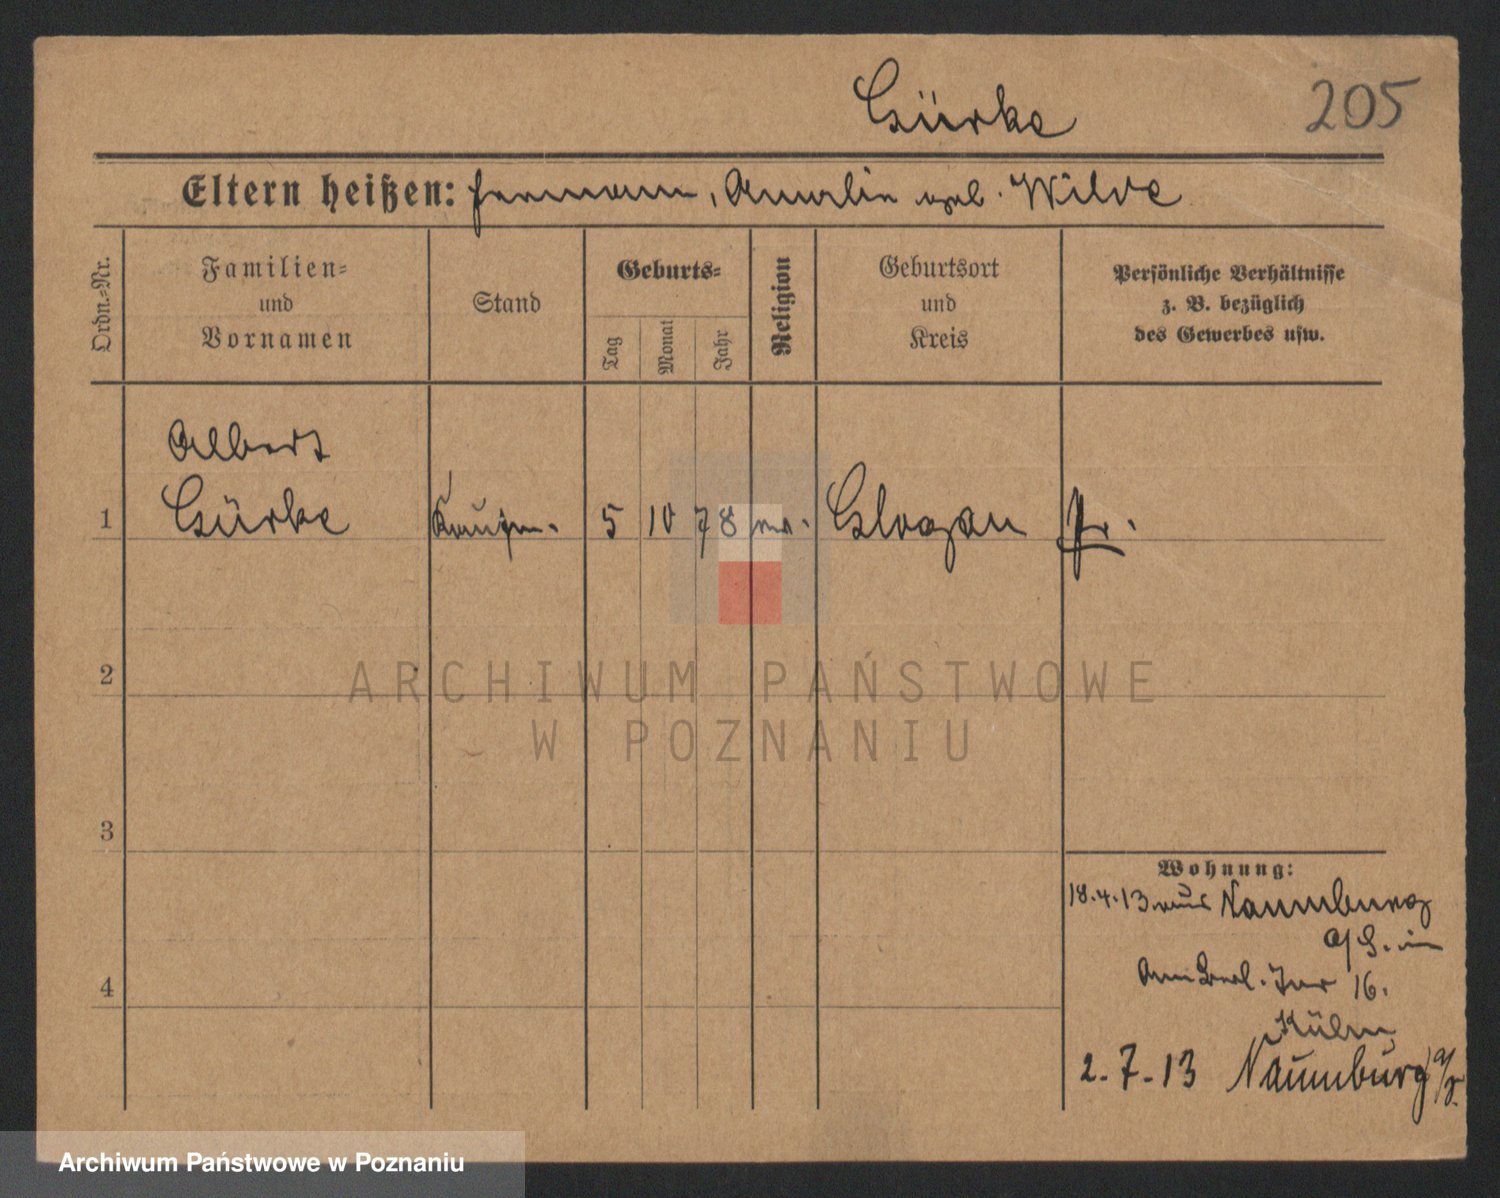 Gürke
205
Eltern heißen: Hermann, Amalie geb. Wilde
Ordn.=Nr.
Familien=
und
Vornamen
Stand
Geburts=
Tag
Monat
Jahr
Religion
Geburtsort
und
Kreis
Persönliche Verhältnisse
z. B. bezüglich
des Gewerbes usw.
Albert
1 Gürke Kaufm. 5 10 78 Glogau Pr.
2
ARCHIWUM PAŃSTWOWE
W POZNANIU
3
Wohnung:
18.4.13 aus Naumburg
a/S. in
4 Am Berl. Tor 16.
Kühn
2.7.13 Naumburg a/S.
Archiwum Państwowe w Poznaniu